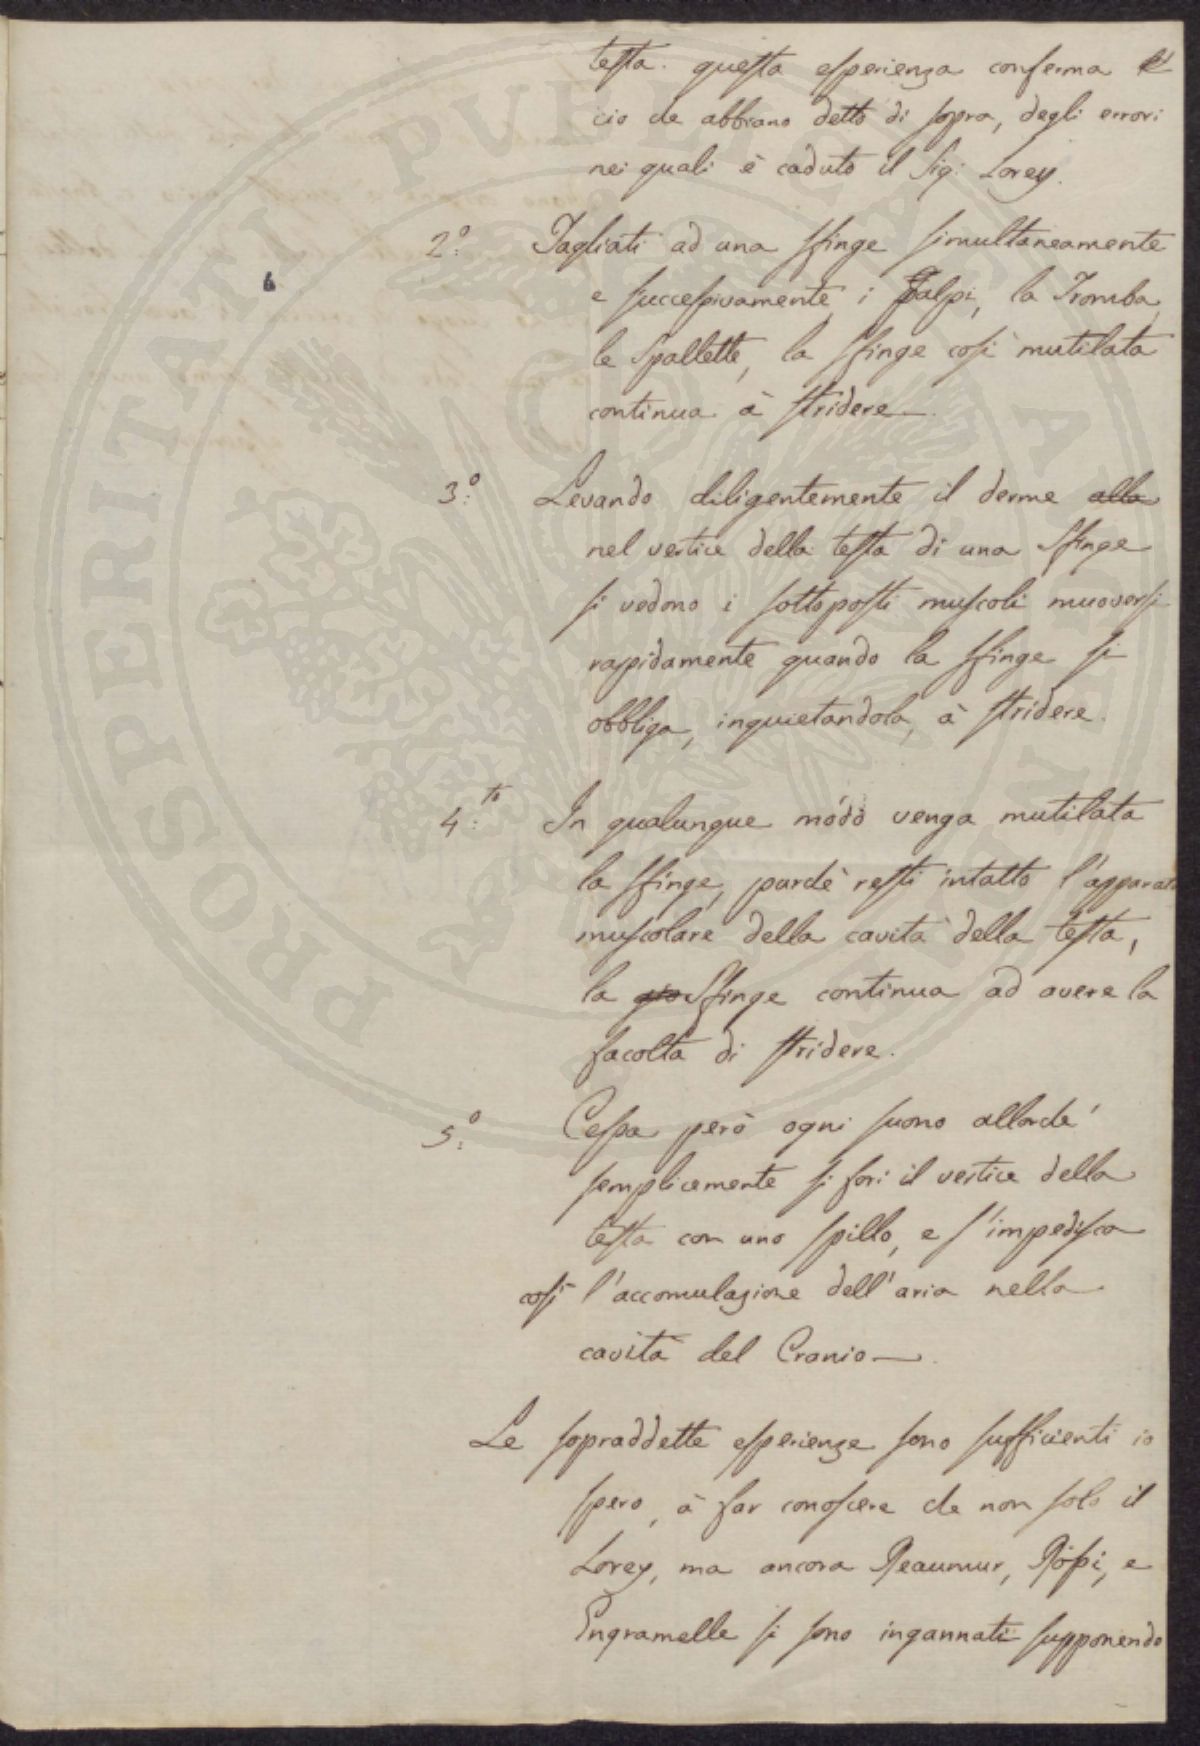 testa. questa esperienza conferma
ciò che abbiano detto di sopra, degli errori
nei quali è caduto il Sig: Lorey.
2.° Tagliati ad una sfinge simultaneamente
e successivamente, i Palpi, la Tromba,
le Spallette, la Sfinge così mutilata
continua à stridere—.
3.° Levando diligentemente il derme alla
nel vertice della testa di una Sfinge
si vedono i sottoposti muscoli muoversi
rapidamente quando la sfinge si
obbliga, inquietandola, à stridere.
4.to In qualunque módo venga mutilata
la sfinge, purchè resti intatto l'apparato
muscolare della cavità della testa,
la Sfinge continua ad avere la
facoltà di stridere.
5.° Cessa però ogni suono allorchè
semplicemente si fori il vertice della
testa con uno spillo, e s'impedisca
così l'accomulazione dell'aria nella
cavità del Cranio—.
Le sopraddette esperienze sono sufficienti io
spero, à far conoscere che non solo il
Lorey, ma ancora Reaumur, Róssi, e
Engramelle si sono ingannati supponendo
PROSPERITATI PUBLICAE AUGENDAE